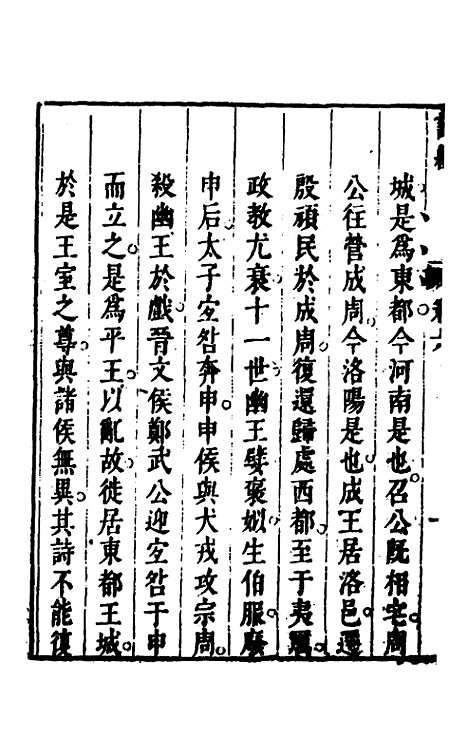 城是為東都今河南是也召公既相宅周
公往營成周今洛陽是也成王居洛邑遷
殷頑民於成周復還歸處西都至于夷厲
政教尤衰十一世幽王嬖褒姒生伯服廢
申后太子宜咎奔申申侯與犬戎攻宗周
殺幽王於戲晉文侯鄭武公迎宜咎于申
而立之是為平王以亂故徙居東都王城
於是王室之尊與諸侯無異其詩不能復